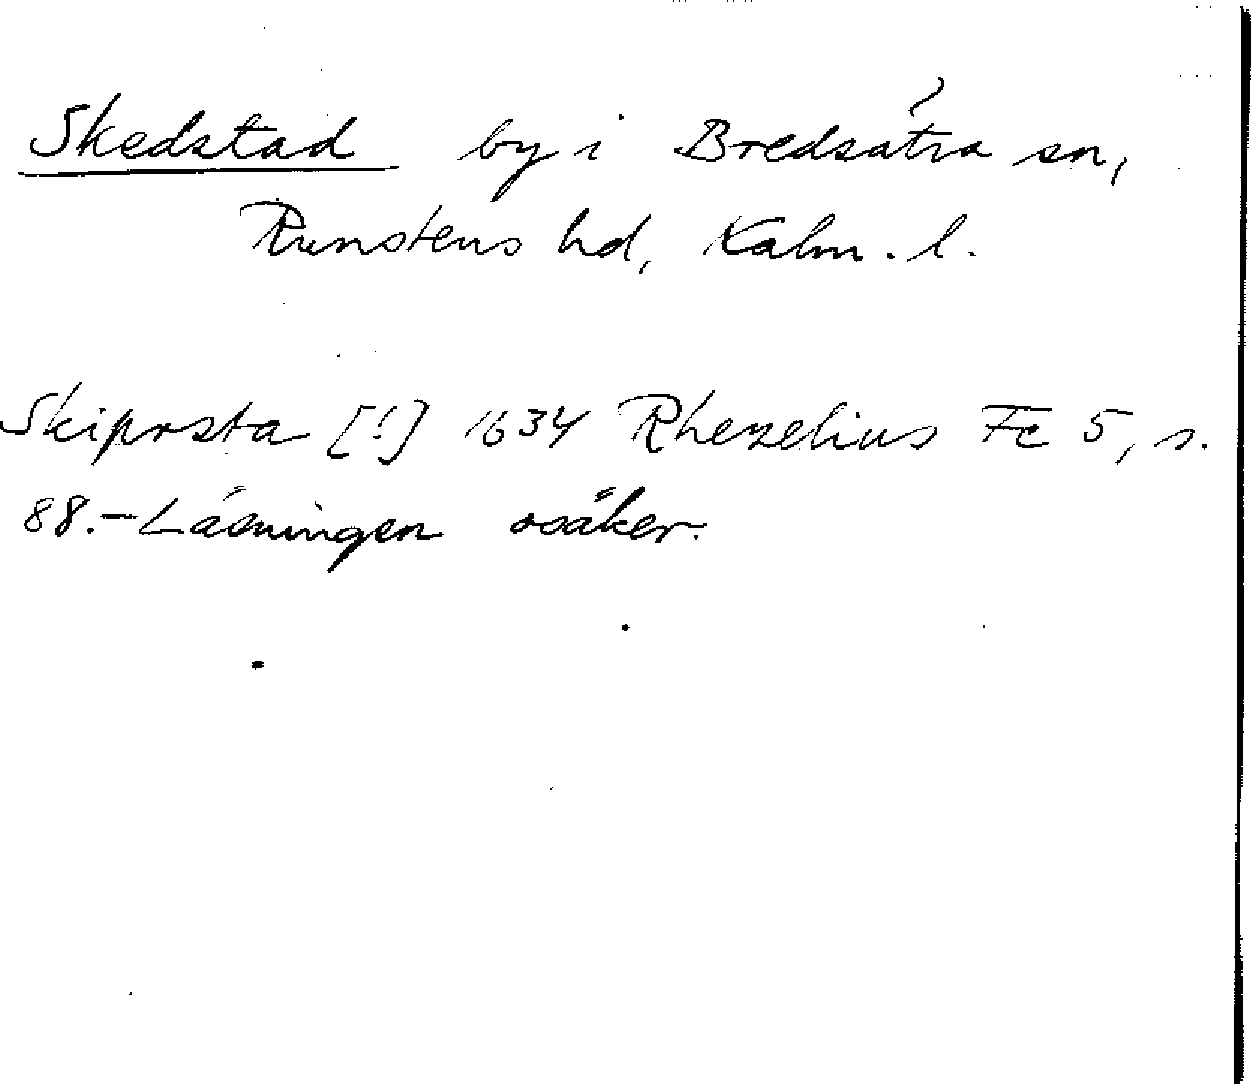 Skedstad by i Bredsätra sn,
Runstens hd, Kalm. l.
Skiprsta [!] 1634 Rhezelius Fc 5, s.
88.-Läsningen osäker.